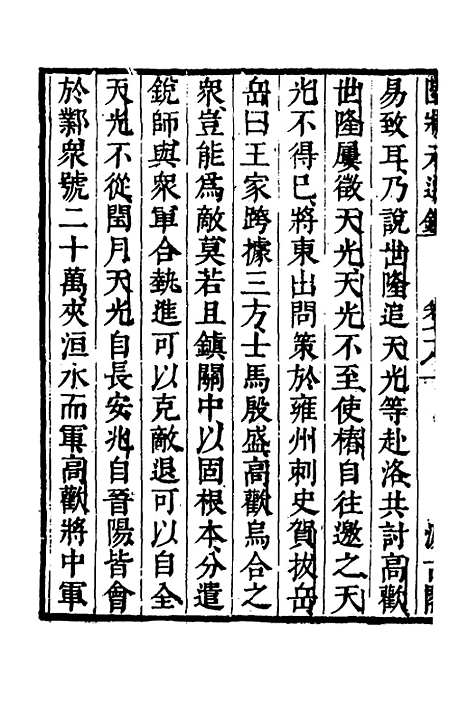 易致耳乃說世隆追天光等赴洛共討高歡
世隆屢徵天光天光不至使椿自往邀之天
光不得已將東出問策於雍州刺史賀拔岳
岳曰王家跨據三方士馬殷盛高歡烏合之
衆豈能爲敵莫若且鎮關中以固根本分遣
銳師與衆軍合埶進可以克敵退可以自全
天光不從閏月天光自長安兆自晉陽皆會
於鄴衆號二十萬夾洹水而軍高歡將中軍